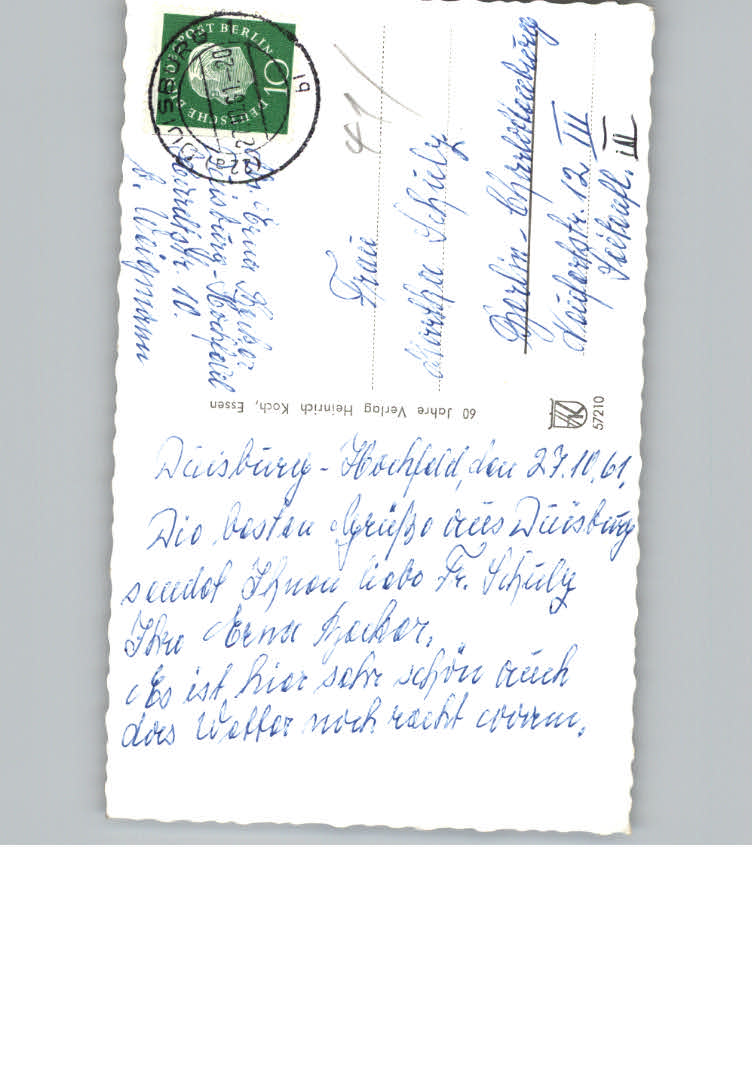 Duisburg-Hochfeld, den 27.10.61.
Die besten Grüße aus Duisburg
sendet Ihnen liebe Fr. Schulz
Ihre Erna Becker.
Es ist hier sehr schön auch
das Wetter noch recht warm.
60 Jahre Verlag Heinrich Koch, Essen
57210
Frau
Martha Schulz
Berlin-Charlottenburg
12 III
41/
Erna Becker
Duisburg-Hochfeld
10.
b. Wiegmann
DEUTSCHE BUNDESPOST BERLIN
10
DUISBURG
(22a)
61-20